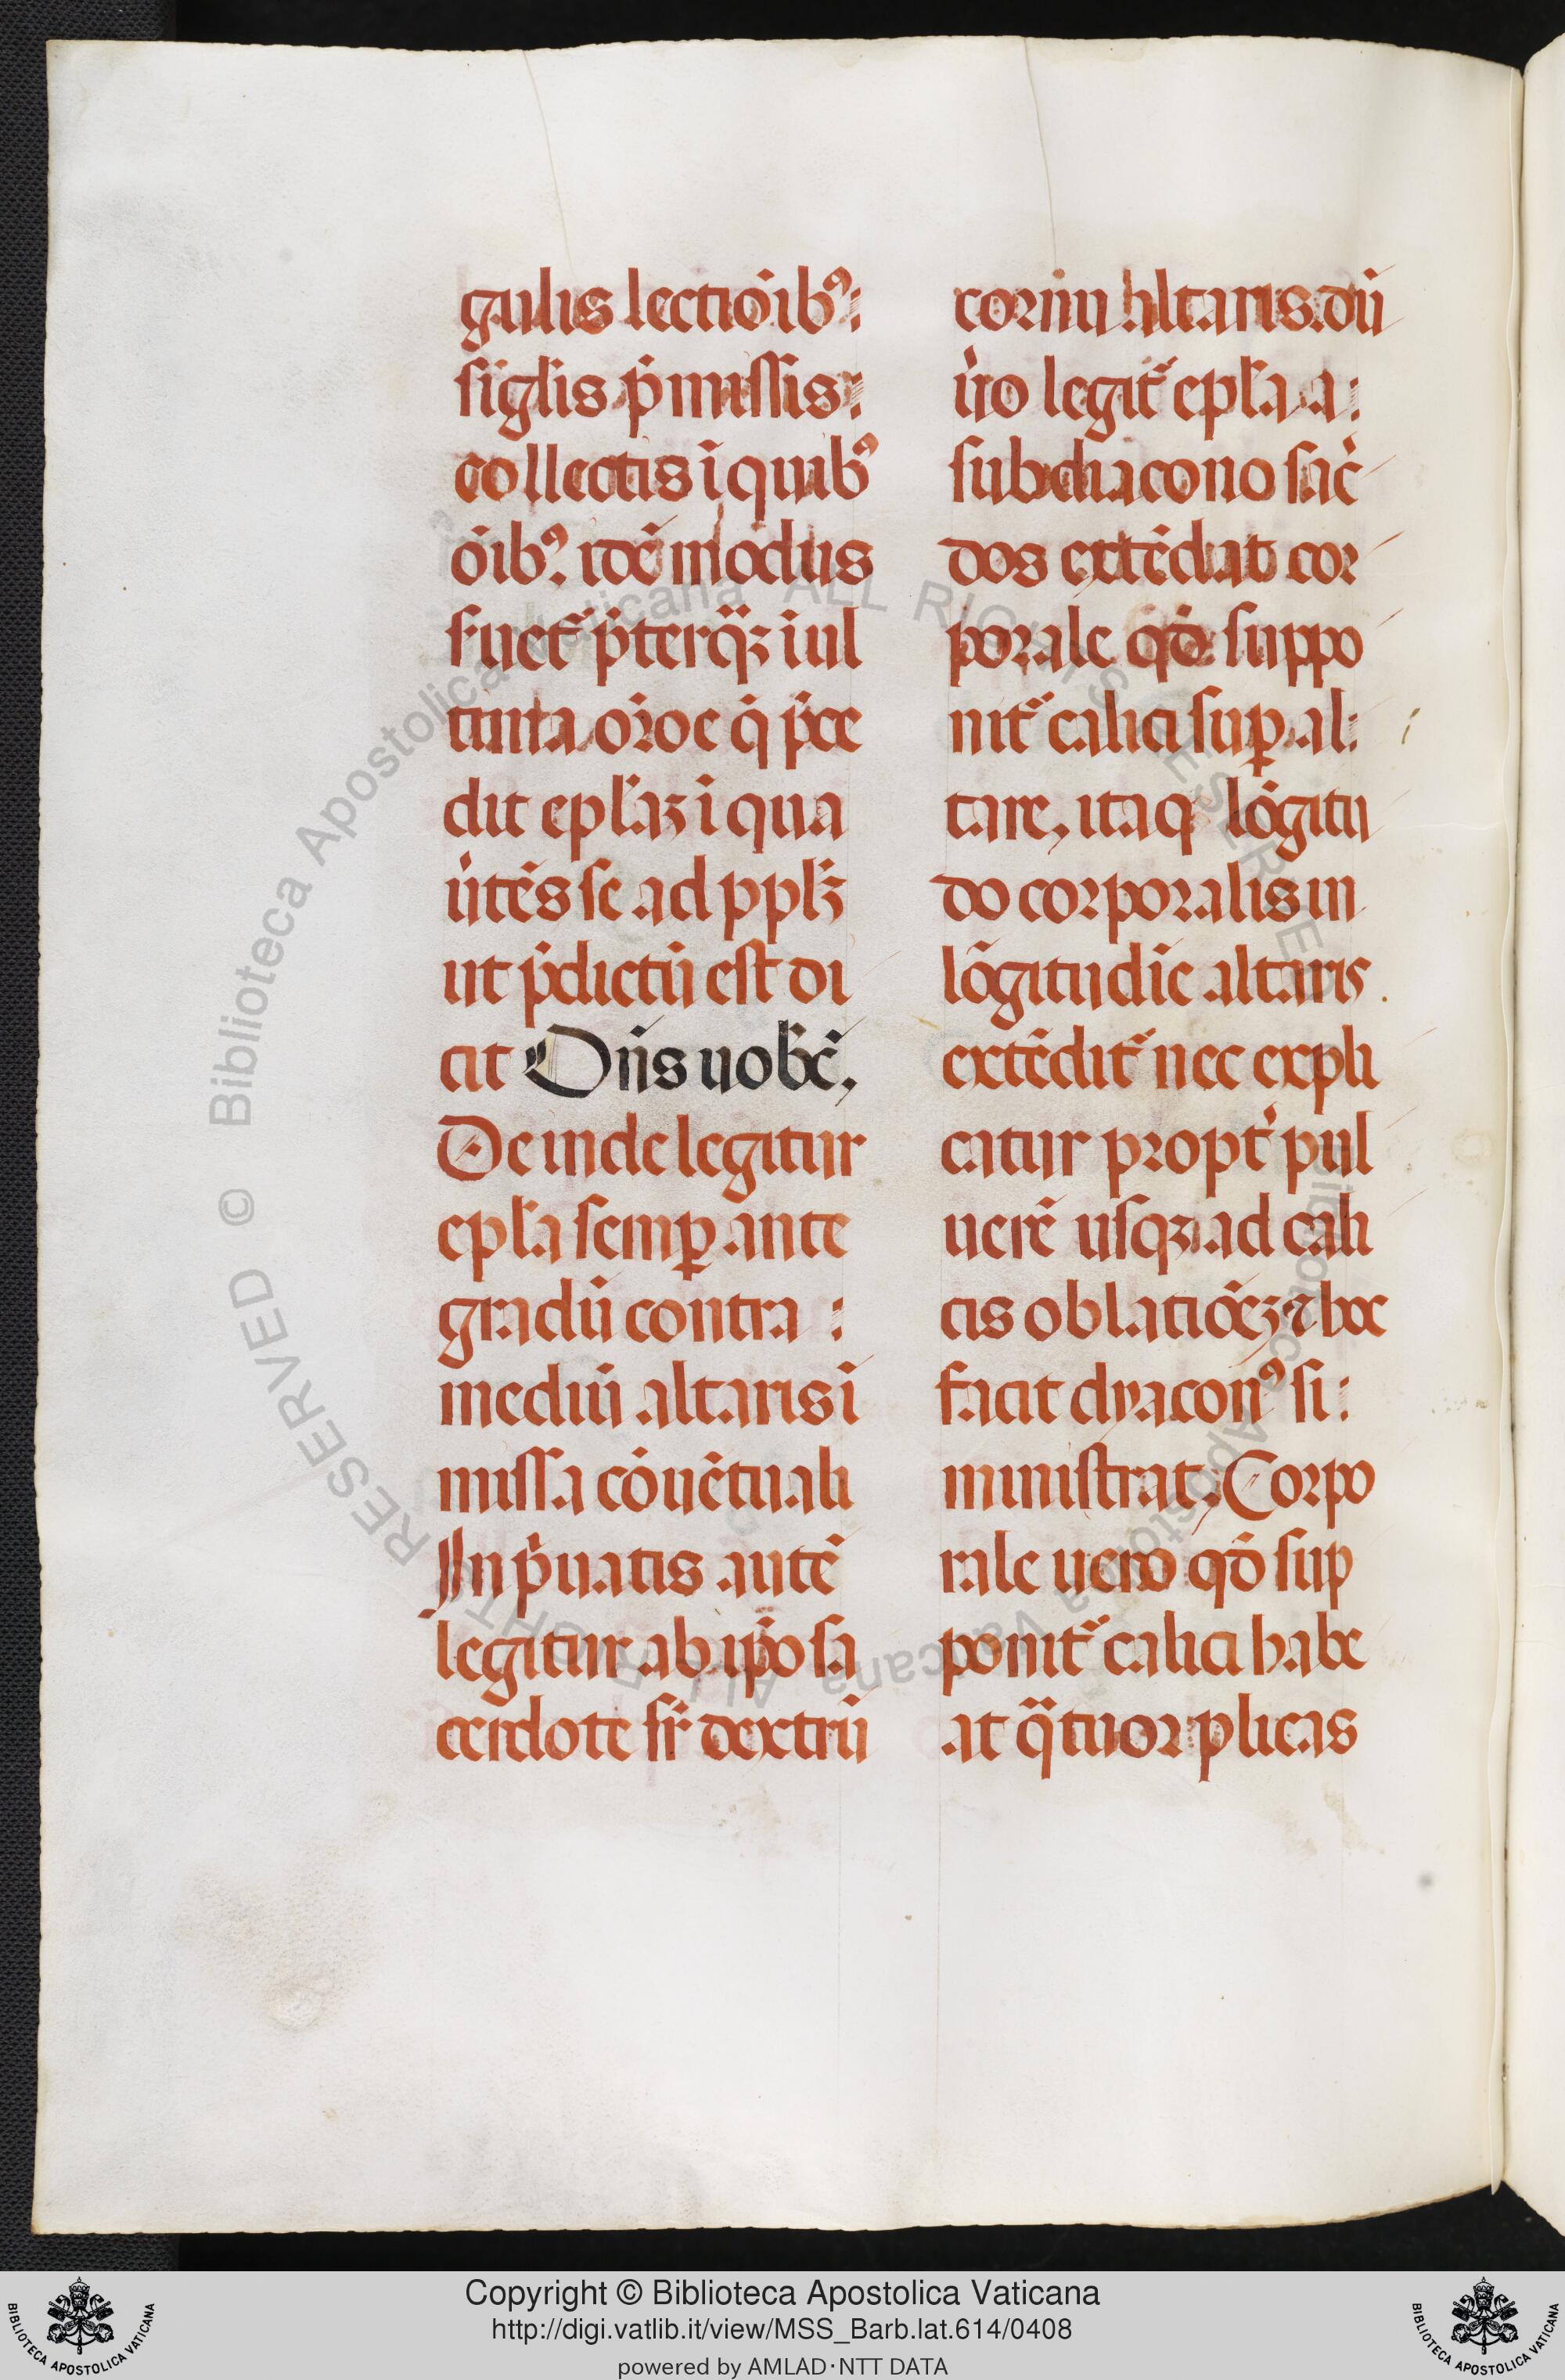 gulis lectiōib⁹:
sīgl'is p̄missis:
collectis ī quib⁹
ōib⁹. idē modus
fuet᷑ p̄terq̄ꝫ ī ul
tima or̄oe q̄ p̄ce
dit epl'aꝫ ī qua
ūtēs se ad ppl'ꝫ
ut p̄dictū est di
cit Dn̄s uobc̄,
Deinde legitur
epl'a semꝑ ante
gradū contra :
mediū altaris ī
missa cōuētuali
In p̄uatis autē
legitur ab ip̄o sa
cerdote sr̄ dextrū
cornu altaris. dū
ūo legit᷑ epl'a a:
subdiacono sac̄
dos extēdat cor
porale qd̄ suppo
nit᷑ calici suꝑ al:
tare, ita q lōgitu
do corporalis in
lōgitudīe altaris
extēdit᷑ nec expli
catur propt̄ pul
uerē usqꝫ ad cali
cis oblatiōeꝫ ⁊ hoc
facit dyacon⁹ si:
ministrat, Corpo
rale uero qd̄ sup
ponit᷑ calici habe
at q̄tuor plicas
Copyright © Biblioteca Apostolica Vaticana
http://digi.vatlib.it/view/MSS_Barb.lat.614/0408
powered by AMLAD·NTT DATA
BIBLIOTECA APOSTOLICA VATICANA
BIBLIOTECA APOSTOLICA VATICANA
© Biblioteca Apostolica Vaticana ALL RIGHTS RESERVED